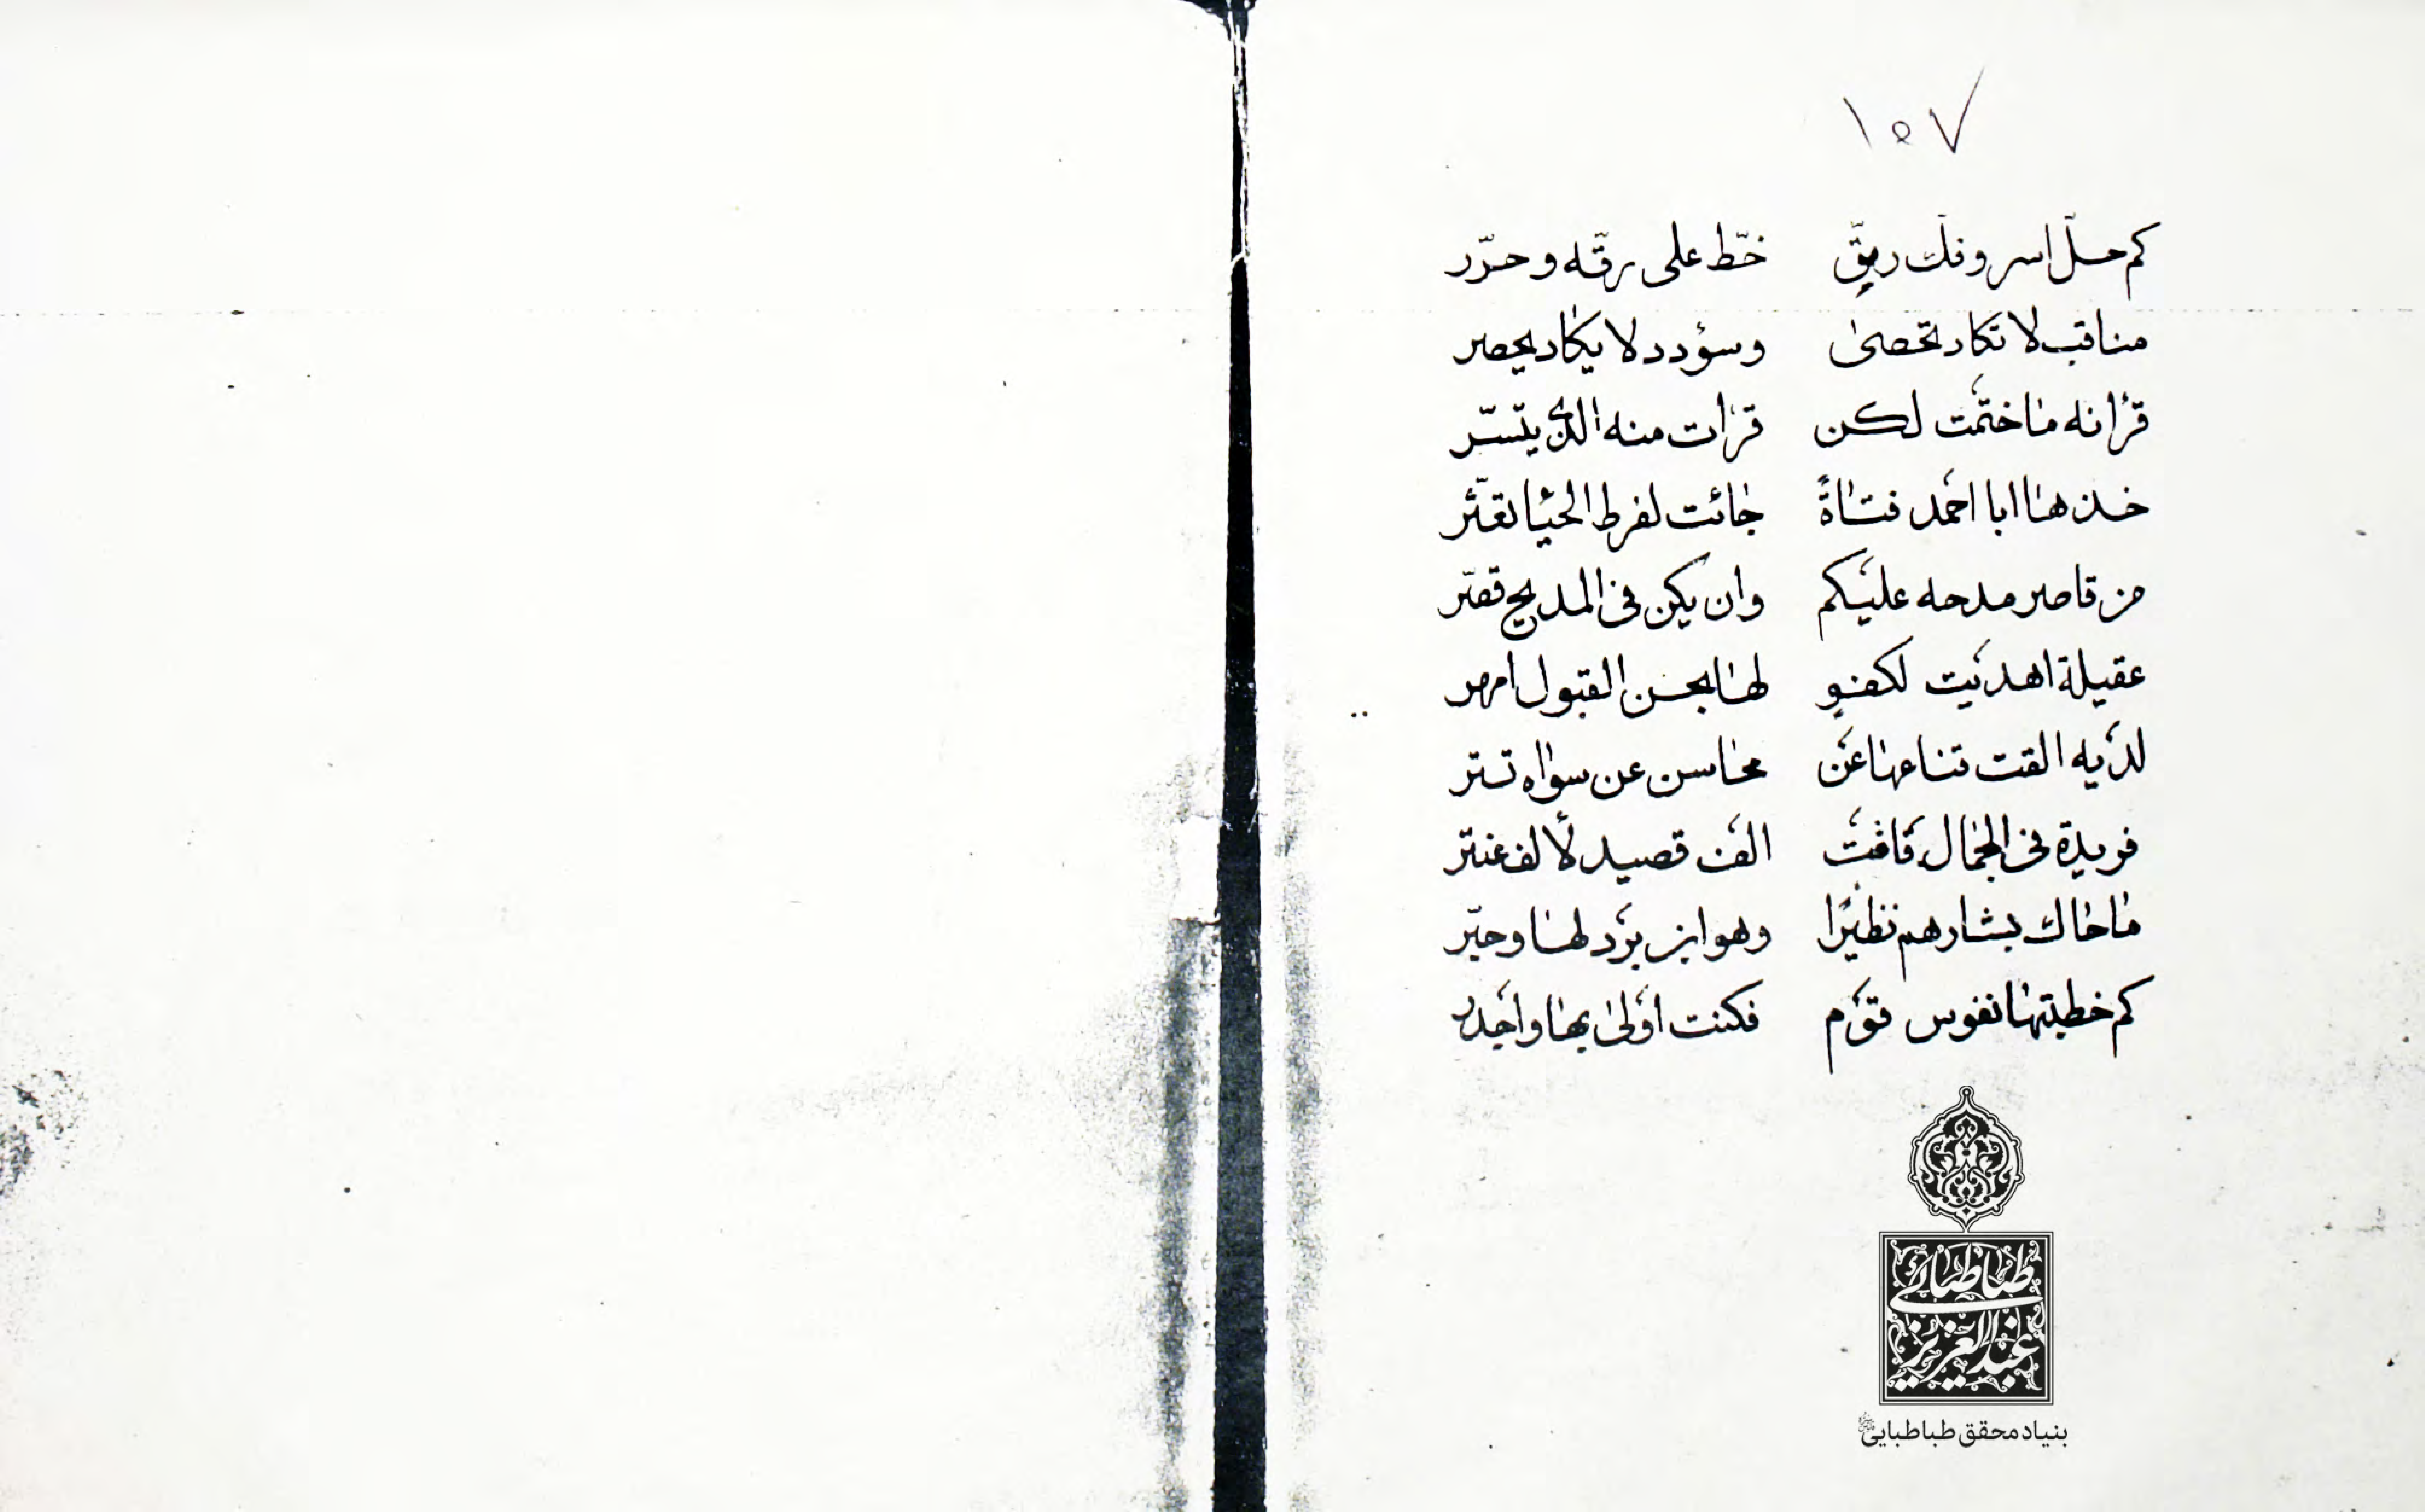 ١٥٧
كم حلّ اسر و فكّ ربقٍ خطّ على رقّه و حرّر
مناقب لا تكاد تحصىٰ و سؤدد لا يكاد يحصر
قرٰانه ماختمت لكن قرٰات منه الذى يتسّر
خذها ابا احمد فتاةً جٰائت لفرط الحيٰا تعثّر
من قاصر مدحه عليكم وان يكن فى المديح قصّر
عقيلة اهديت لكفوٍ لها بحسن القبول امهر
لديه القت قناعها عن محاسن عن سواه تستر
فريدة فى الجمال فاقت الف قصيد لألف عنتر
ماحاك بشارهم نظيرًا وهو ابن برد لها وحبّر
كم خطبتها نفوس قوم فكنت اولىٰ بها واجدر
طباطبائی
عبدالعزیز
بنیاد محقق طباطبایی